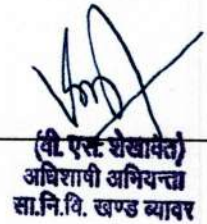 (वी. एस. शेखावत)
अधिशाषी अभियन्ता
सा.नि.वि. खण्ड ब्यावर